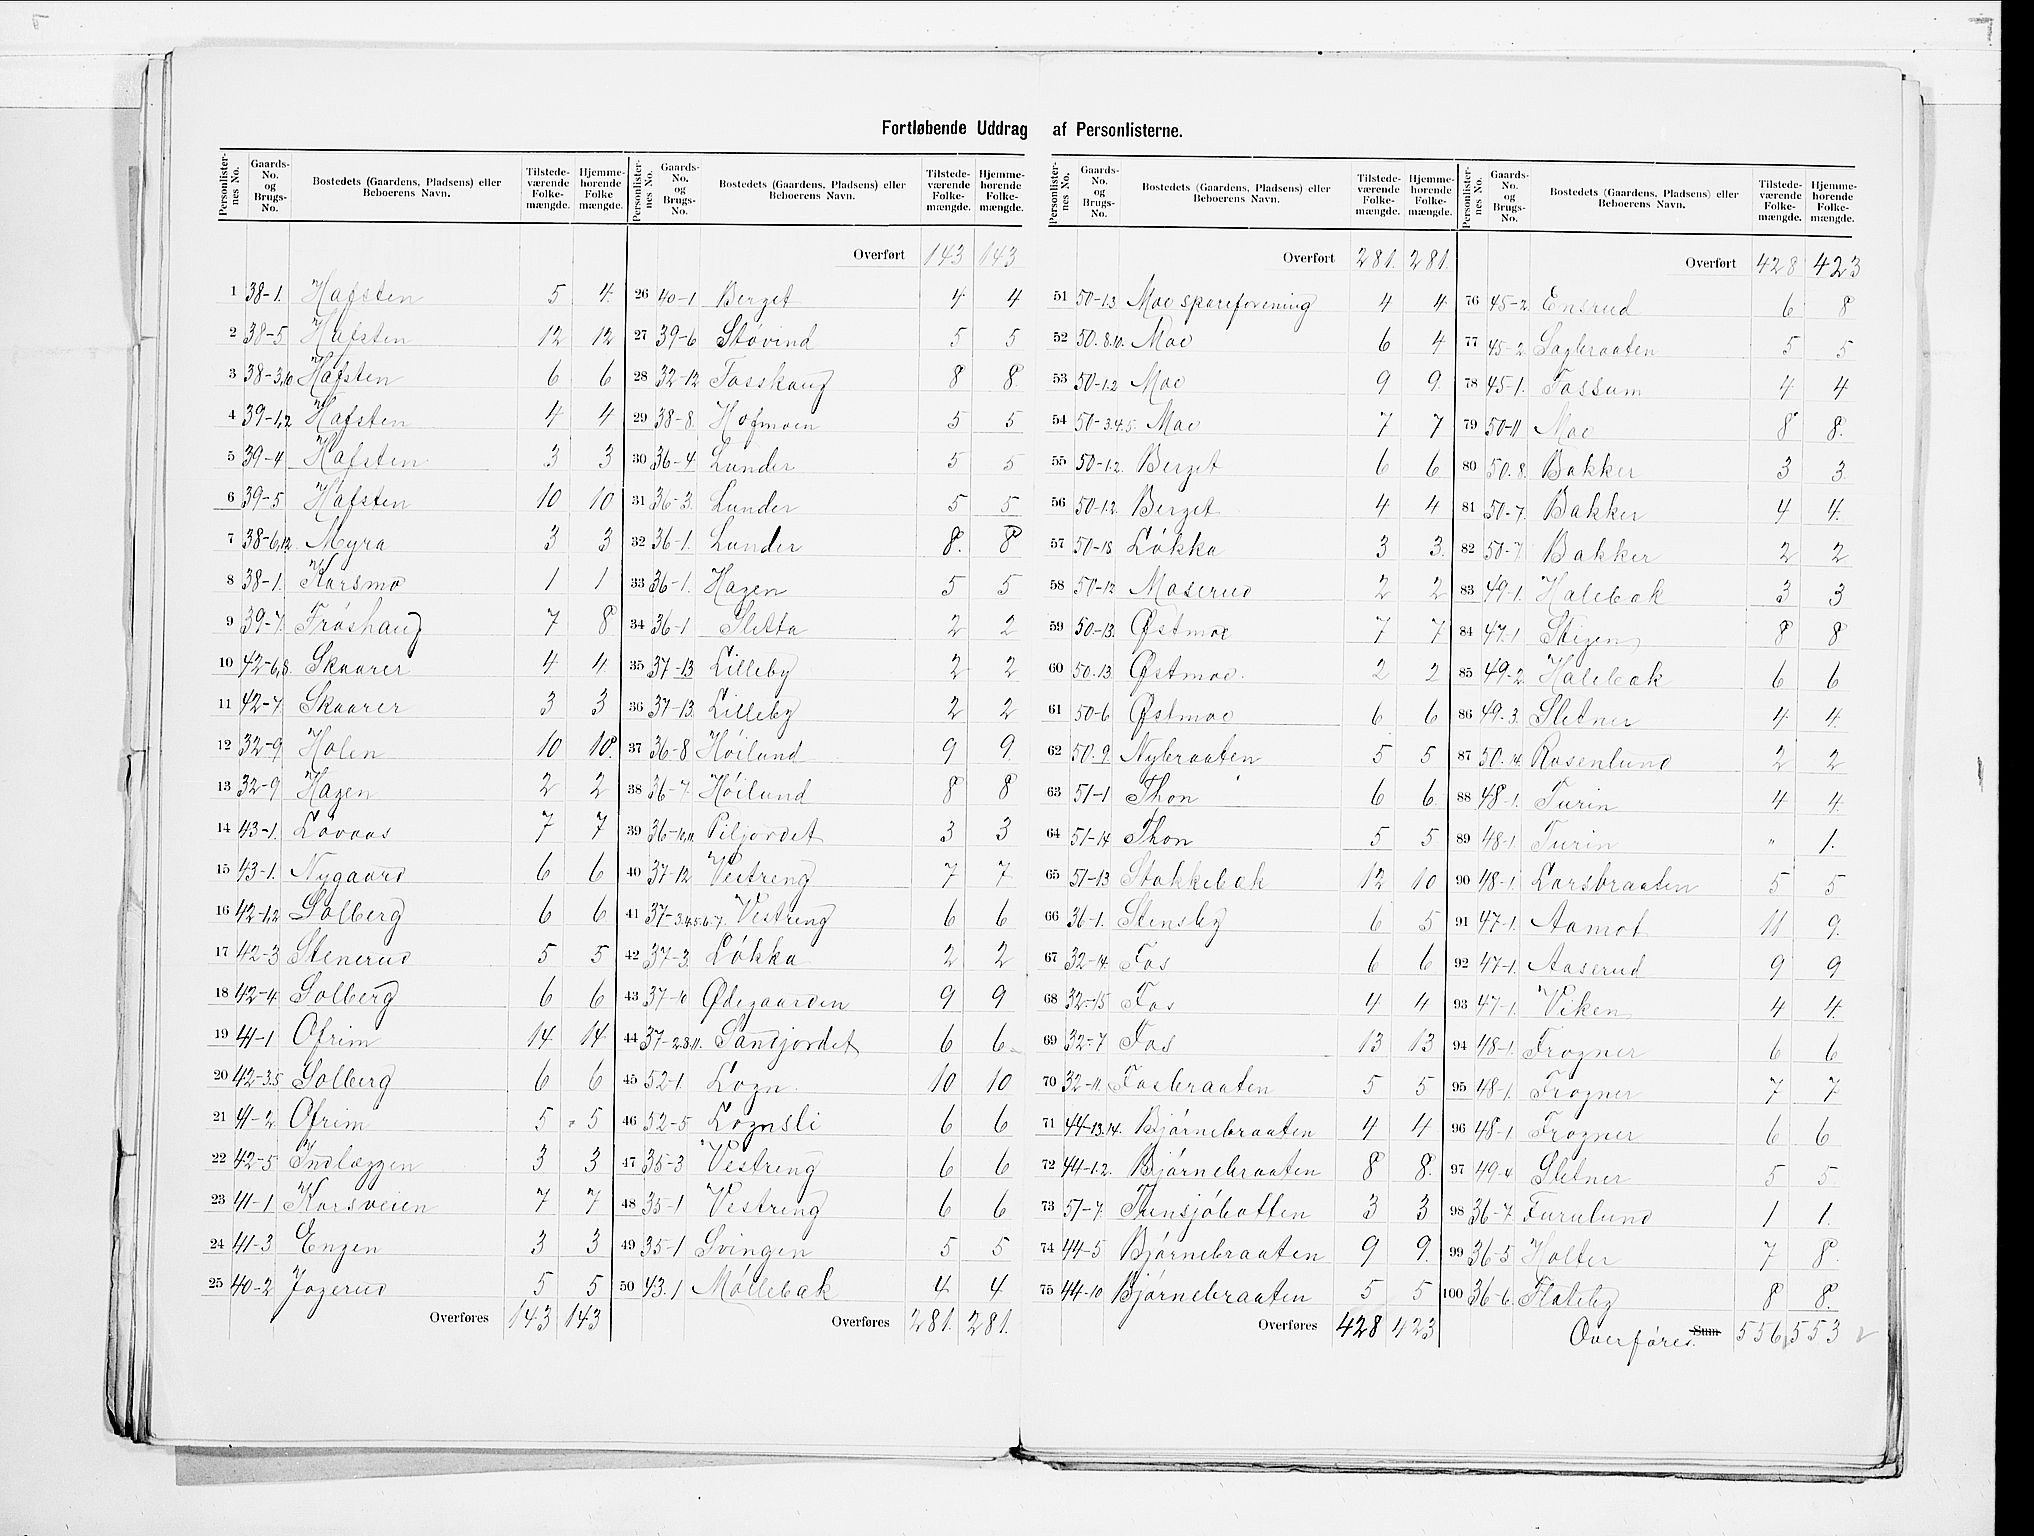 Fortløbende Uddrag af Personlisterne.
Personlister-nes No. Gaards-No. og Brugs-No. Bostedets (Gaardens, Pladsens) eller Beboerens Navn. Tilstede-værende Folke-mængde. Hjemme-hørende Folke mængde.
1 38-1. Hafsten 5 4.
2 38-5 Hafsten 12 12
3 38-3,10 Hafsten 6 6
4 39-1,2 Hafsten 4 4
5 39-4 Hafsten 3 3
6 39-5 Hafsten 10 10
7 38-6,12 Myra 3 3
8 38-1. Karsmo 1 1
9 39-7. Frøshaug 7 8
10 42-6,8. Skaarer 4 4
11 42-7. Skaarer 3 3
12 32-9 Holen 10 10.
13 32-9 Hagen 2 2
14 43-1. Lovaas 7 7
15 43-1. Nygaard 6 6
16 42-1,2 Solberg 6 6
17 42-3 Stenerud 5 5
18 42-4. Solberg 6 6
19 41-1 Ofrim 14 14
20 42-3.5 Solberg 6 6
21 41-2 Ofrim 5 5
22 42-5 Indlæggen 3 3
23 41-1 Korsveien 7 7
24 41-3 Engen 3 3
25 40-2 Jogerud 5 5
Overføres 143 143
Personlister-nes No. Gaards-No. og Brugs-No. Bostedets (Gaardens, Pladsens) eller Beboerens Navn. Tilstede-værende Folke-mængde. Hjemme-hørende Folke-mængde.
Overført 143 143
26 40-1 Berget 4 4
27 39-6 Støvind 5 5
28 32-12 Fosshaug 8 8
29 38-8. Hofmoen 5 5
30 36-4 Lunder 5 5
31 36-3. Lunder 5 5
32 36-1. Lunder 8. 8
33 36-1. Hagen 5 5
34 36-1 Sletta 2 2
35 37-13 Lilleby 2 2
36 37-13. Lilleby 2 2
37 36-8 Høilund 9 9.
38 36-7. Høilund 8 8
39 36-10,11. Piljordet 3 3
40 37-12 Vestreng 7 7
41 37-3.4.5.6.7. Vestreng 6 6
42 37-3. Løkka 2 2
43 37-10 Ødegaarden 9 9
44 37-2.8.11. Sandjordet 6 6
45 52-1. Logn. 10 10
46 52-5 Lognsli 6 6
47 35-3 Vestreng 6 6
48 35-1 Vestreng 6 6
49 35-1 Svingen 5 5
50 43.1 Møllebak 4 4
Overføres 281. 281.
Personlister-nes No. Gaards-No. og Brugs-No. Bostedets (Gaardens, Pladsens) eller Beboerens Navn. Tilstede-værende Folke-mængde. Hjemme-hørende Folke-mængde.
Overført 281. 281.
51 50-13 Moe spareforening 4 4
52 50.8.10. Moe 6 4
53 50-1.2 Moe 9 9.
54 50-3.4.5. Moe 7 7
55 50-1.2. Berget 6 6
56 50-1.2. Berget 4 4
57 50-18 Løkka 3 3.
58 50-12 Moserud 2 2
59 50-13. Østmoe 7 7
60 50.13 Østmoe. 2 2
61 50-6 Østmoe 6 6
62 50.9. Nybraaten 5 5
63 51-1 Thon 6 6
64 51-14 Thon 5 5
65 51-13 Stokkebak 12 10
66 36-1. Stensby 6 5
67 32-14. Fos 6 6
68 32-15 Fos 4 4
69 32-7 Fos 13 13
70 32-11. Fosbraaten 5 5
71 44-13.14. Bjørnebraaten 4 4
72 44-1.2. Bjørnebraaten 8 8.
73 51-7. Tunsjøbotten 3 3
74 44-5 Bjørnebraaten 9 9.
75 44-10 Bjørnebraaten 5 5
Overføres 428 423
Personlister-nes No. Gaards-No. og Brugs-No. Bostedets (Gaardens, Pladsens) eller Beboerens Navn. Tilstede-værende Folke-mængde. Hjemme-hørende Folke-mængde.
Overført 428 423
76 45-2. Ensrud 6 8
77 45-2. Sagbraaten 5 5
78 45-1. Fossum 4 4
79 50-11 Moe 8 8.
80 50.8. Bakker 3 3.
81 50-7. Bakker 4 4.
82 50-7. Bakker 2 2
83 49-1. Halebak 3 3
84 47-1 Stigen 8 8
85 49-2. Halebak 6 6
86 49.3. Sletner 4 4.
87 50.14. Rosenlund 2 2
88 48-1. Turin 4 4.
89 48-1. Turin " 1.
90 48-1 Larsbraaten 5 5
91 47-1. Aamot 11 9.
92 47-1. Aaserud 9 9
93 47-1. Viken 4 4.
94 48-1. Frogner 6 6
95 48-1. Frogner 7 7
96 48-1 Frogner 6 6
97 49.4 Sletner 5 5.
98 36-7. Furulund 1 1.
99 36-5 Holter 7 8.
100 36-6. Flateby 8 8.
Overføres. Sum 556 553